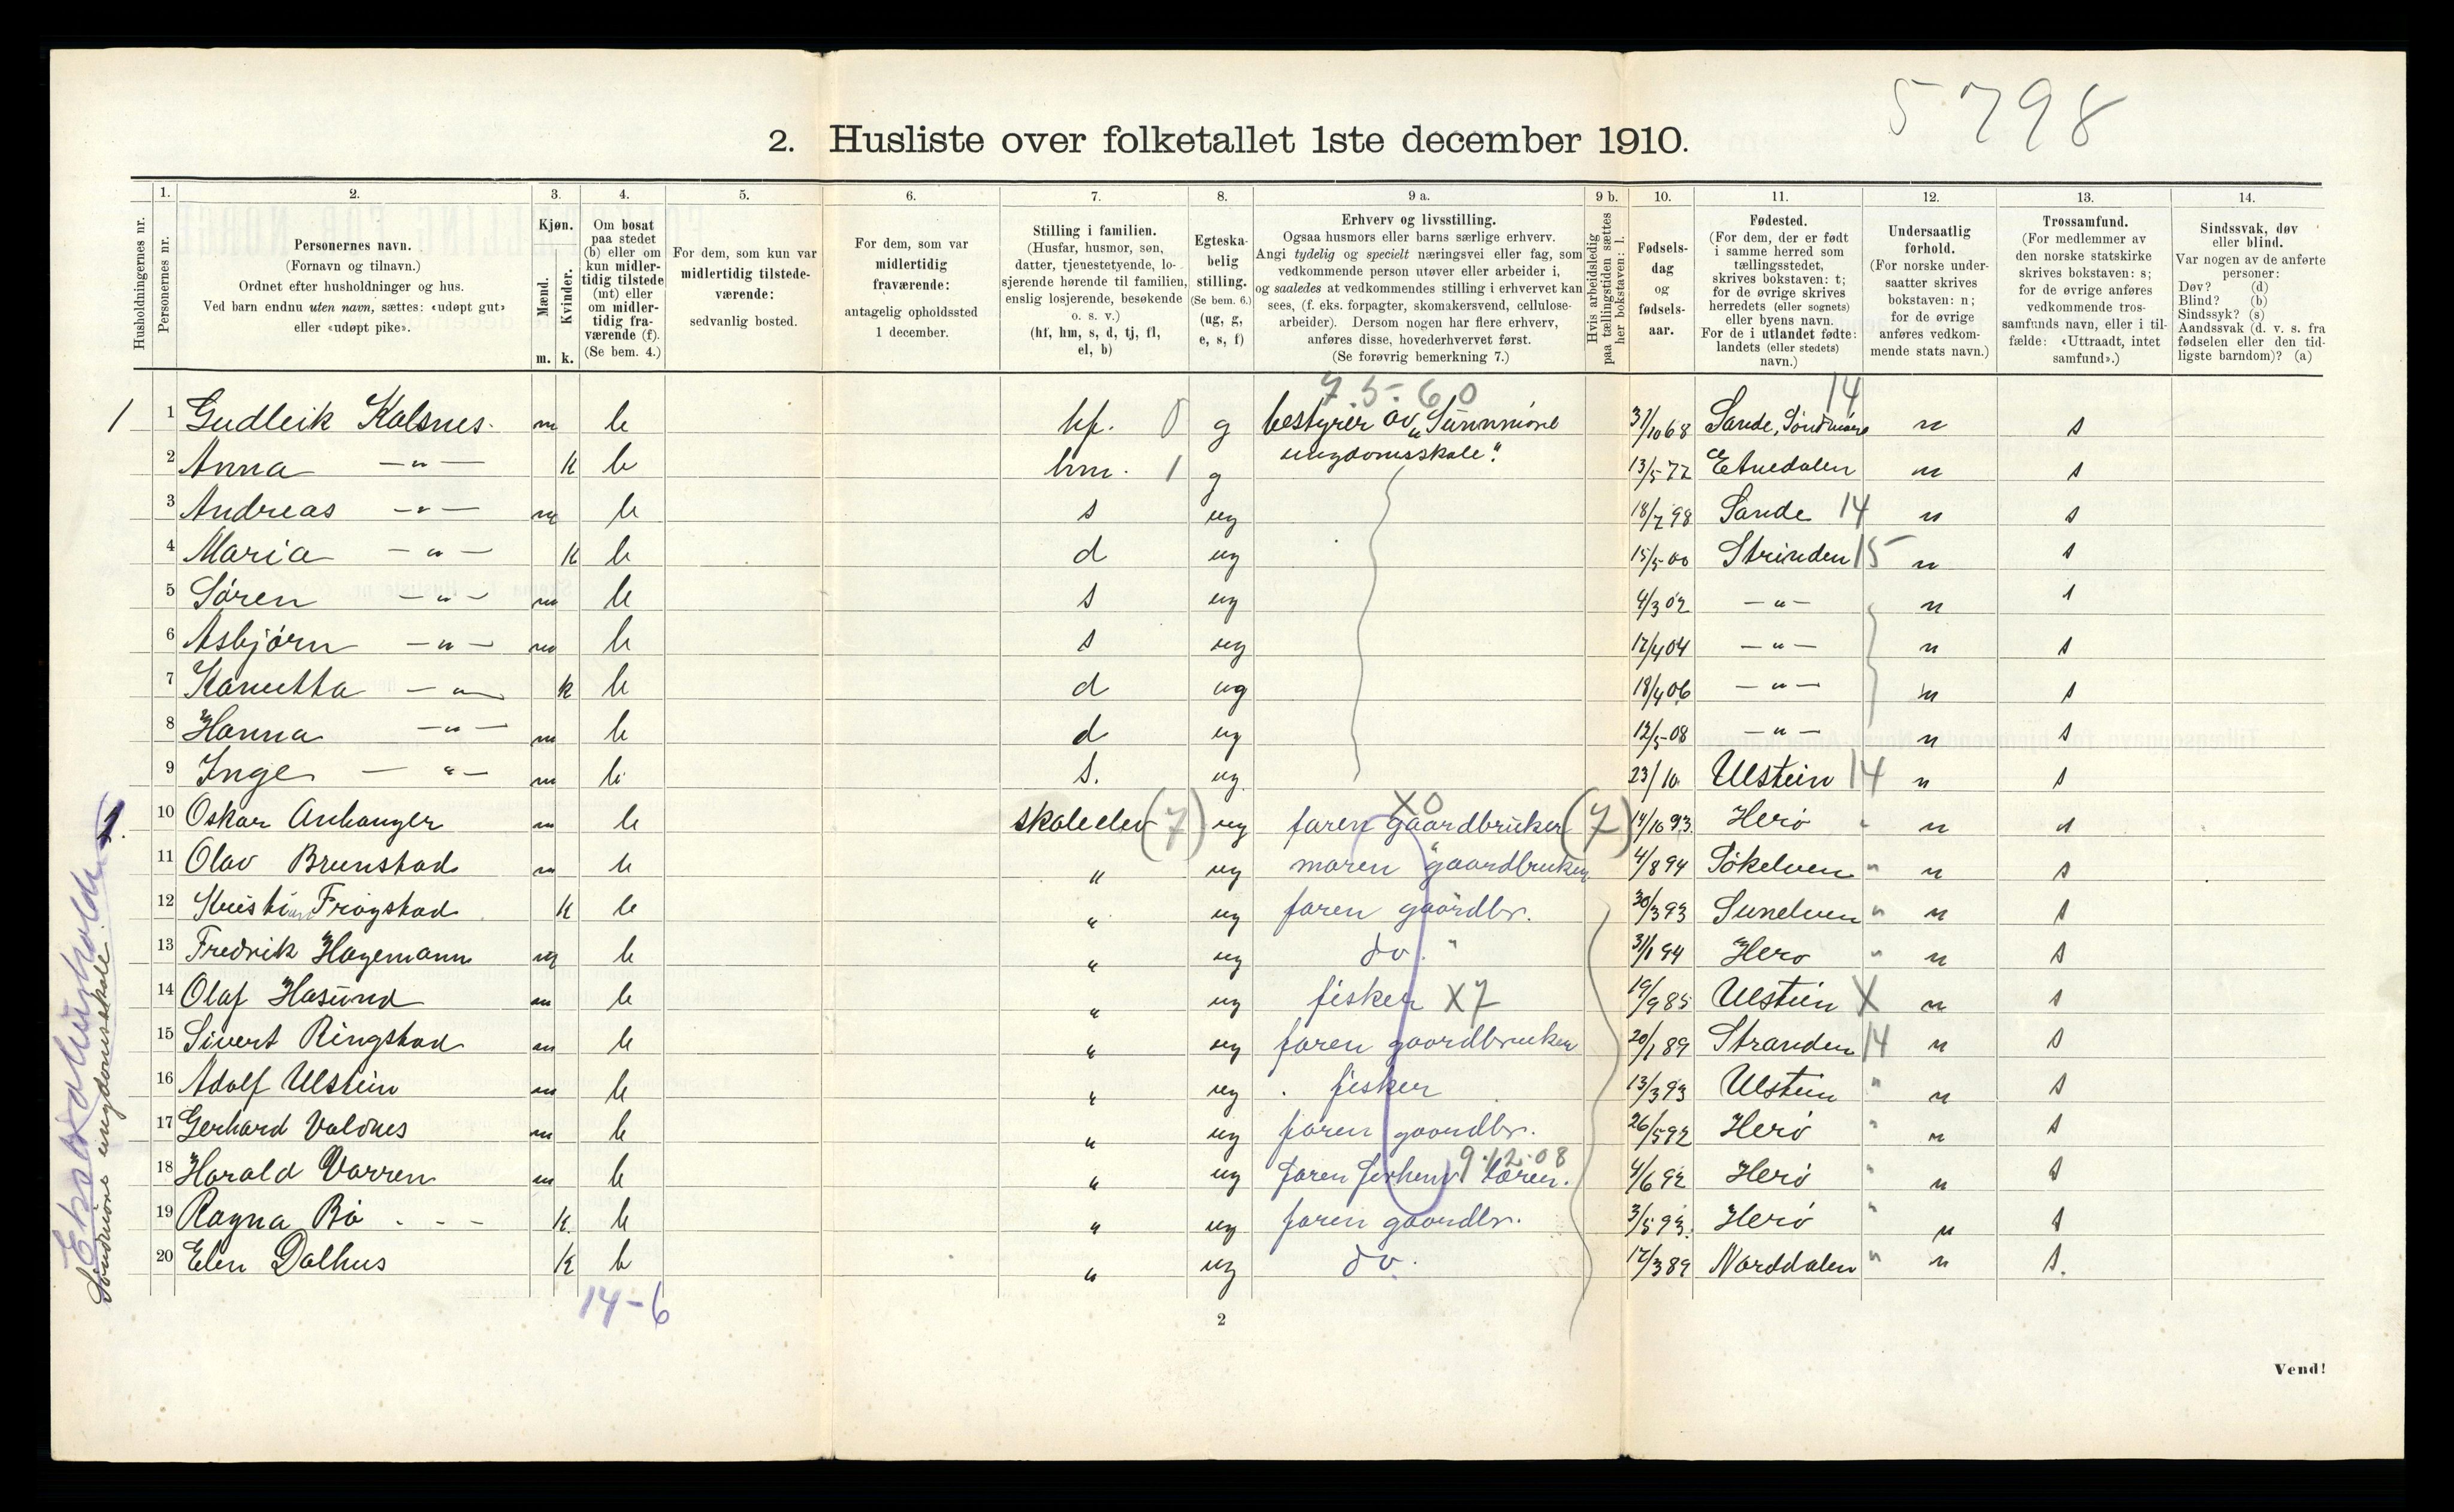 5798
2. Husliste over folketallet 1ste december 1910.
Husholdningernes nr.
1.
Personernes nr.
2.
Personernes navn.
(Fornavn og tilnavn.)
Ordnet efter husholdninger og hus.
Ved barn endnu uten navn, sættes: «udøpt gut»
eller «udøpt pike».
3.
Kjøn.
Mænd.
Kvinder.
m. k.
4.
Om bosat
paa stedet
(b) eller om
kun midler-
tidig tilstede
(mt) eller
om midler-
tidig fra-
værende (f).
(Se bem. 4.)
5.
For dem, som kun var
midlertidig tilstede-
værende:
sedvanlig bosted.
6.
For dem, som var
midlertidig
fraværende:
antagelig opholdssted
1 december.
7.
Stilling i familien.
(Husfar, husmor, søn,
datter, tjenestetyende, lo-
sjerende hørende til familien,
enslig losjerende, besøkende
o. s. v.)
(hf, hm, s, d, tj, fl,
el, b)
8.
Egteska-
belig
stilling.
(Se bem. 6.)
(ug, g,
e, s, f)
9 a.
Erhverv og livsstilling.
Ogsaa husmors eller barns særlige erhverv.
Angi tydelig og specielt næringsvei eller fag, som
vedkommende person utøver eller arbeider i,
og saaledes at vedkommendes stilling i erhvervet kan
sees, (f. eks. forpagter, skomakersvend, cellulose-
arbeider). Dersom nogen har flere erhverv,
anføres disse, hovederhvervet først.
(Se forøvrig bemerkning 7.)
9 b.
Hvis arbeidsledig
paa tællingstiden sættes
her bokstaven: l.
10.
Fødsels-
dag
og
fødsels-
aar.
11.
Fødested.
(For dem, der er født
i samme herred som
tællingsstedet,
skrives bokstaven: t;
for de øvrige skrives
herredets (eller sognets)
eller byens navn.
For de i utlandet fødte:
landets (eller stedets)
navn.)
12.
Undersaatlig
forhold.
(For norske under-
saatter skrives
bokstaven: n;
for de øvrige
anføres vedkom-
mende stats navn.)
13.
Trossamfund.
(For medlemmer av
den norske statskirke
skrives bokstaven: s;
for de øvrige anføres
vedkommende tros-
samfunds navn, eller i til-
fælde: «Uttraadt, intet
samfund».)
14.
Sindssvak, døv
eller blind.
Var nogen av de anførte
personer:
Døv? (d)
Blind? (b)
Sindssyk? (s)
Aandssvak (d. v. s. fra
fødselen eller den tid-
ligste barndom)? (a)
7.5-60 14
1 1 Gudleik Kalsnes m b hf. 0 g bestyrer av „Sunnmöre 31/10 68 Sande, Söndmöre n s
ungdomsskale".
2 Anna —"— k b hm. 1 g 13/5 72 Etnedalen n s
3 Andreas —"— m b s ug 18/7 98 Sande 14 n s
4 Maria —"— k b d ug 15/5 00 Strinden 15 n s
5 Søren —"— m b s ug 4/3 02 —"— n s
6 Asbjørn —"— m b s ug 12/4 04 —"— n s
7 Kanutta —"— k b d ug 18/4 06 —"— n s
8 Hanna —"— m b d ug 12/5 08 —"— n s
9 Inge —"— m b s. ug 23/10 Ulstein 14 n s
X0
1. 10 Oskar Anhanger m b skoleelev (7) ug faren gaardbruker (7) 14/10 93 Herö " n s
11 Olav Brunstad m b " ug moren gaardbruker 4/8 94 Sökelven " n s
12 Kristine Frøystad k b " ug faren gaardbr. 30/3 93 Sunelven " n s
13 Fredrik Hagemann m b " ug do. " 31/1 94 Herø " n s
14 Olaf Hasund m b " ug fisker X7 19/9 85 Ulstein X n s
15 Sivert Ringstad m b " ug faren gaardbruker 20/1 89 Stranden 14 n s
16 Adolf Ulstein m b " ug fisker 13/3 93 Ulstein " n s
17 Gerhard Valdnes m b " ug faren gaardbr. 26/5 92 Herö " n s
9.12.08
18 Harald Varren m b " ug faren 4/6 92 Herö " n s
19 Ragna Bö k b " ug faren gaardbr. 3/5 93. Herö " n s
20 Elen Dalhus k b " ug do. 12/3 89 Norddalen " n s.
14-6
Ekstrahushold
Söndmöre ungdomsskole
2
Vend!